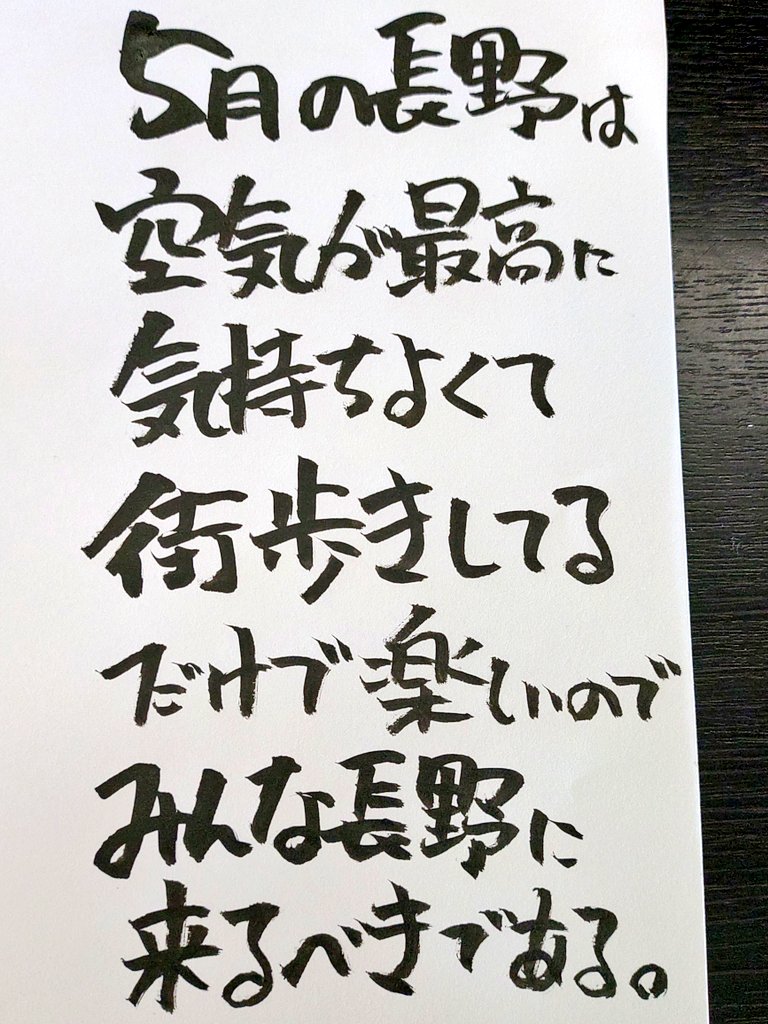 5月の長野は
空気が最高に
気持ちよくて
街歩きしてる
だけで楽しいので
みんな長野に
来るべきである。